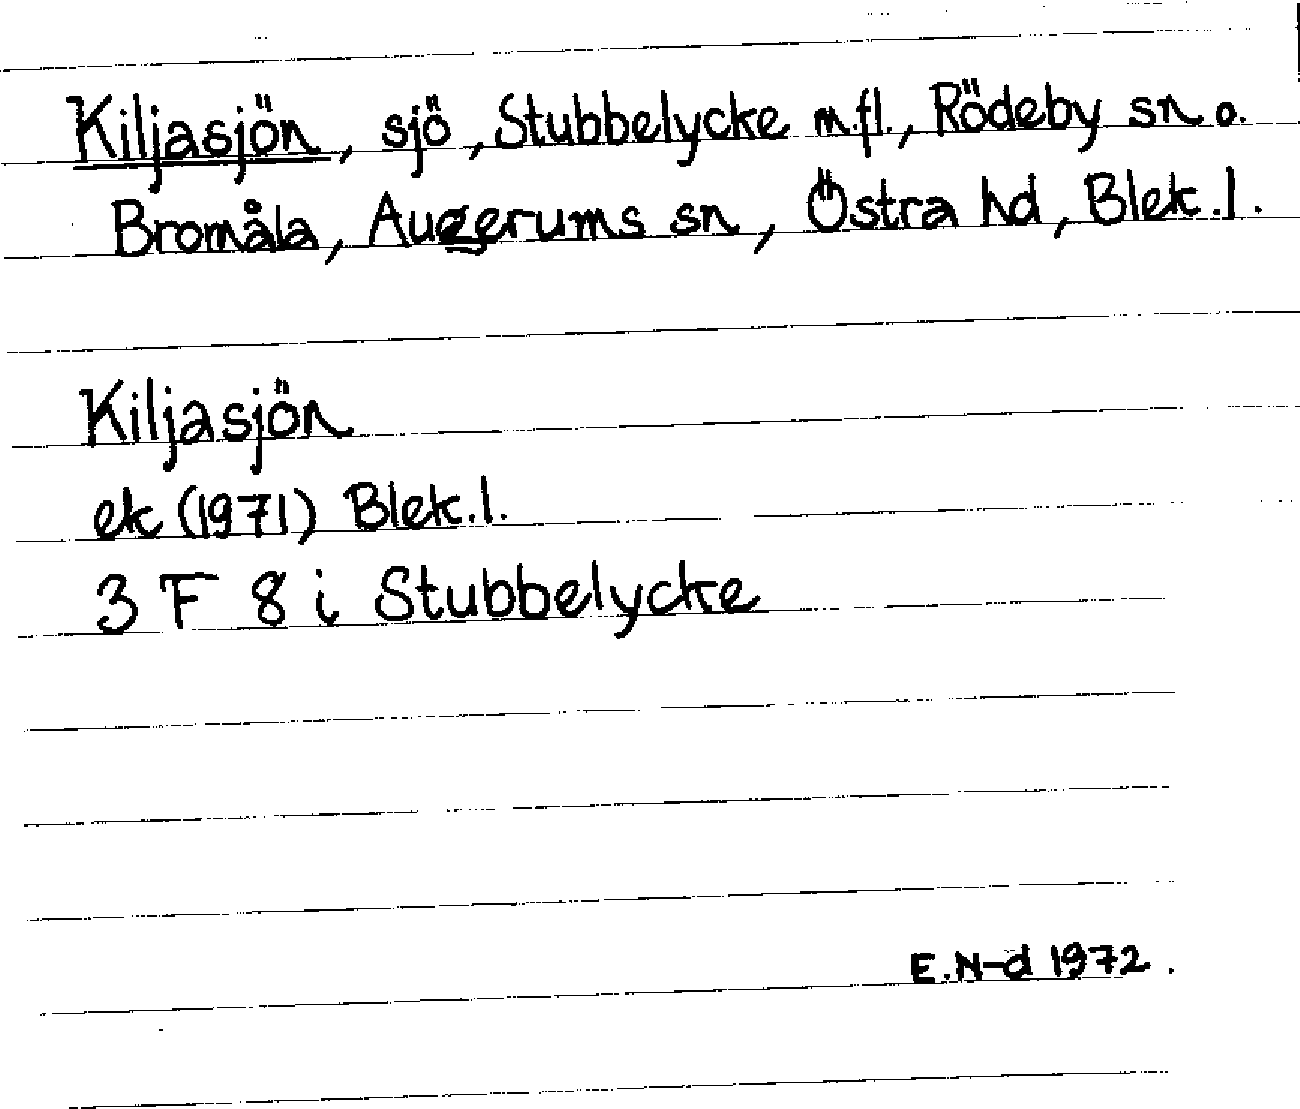 Kiljasjön, sjö, Stubbelycke m.fl., Rödeby sn o.
Bromåla, Augerums sn, Östra hd, Blek.l.
Kiljasjön
ek (1971) Blek.l.
3 F 8 i Stubbelycke
E.N-d 1972.